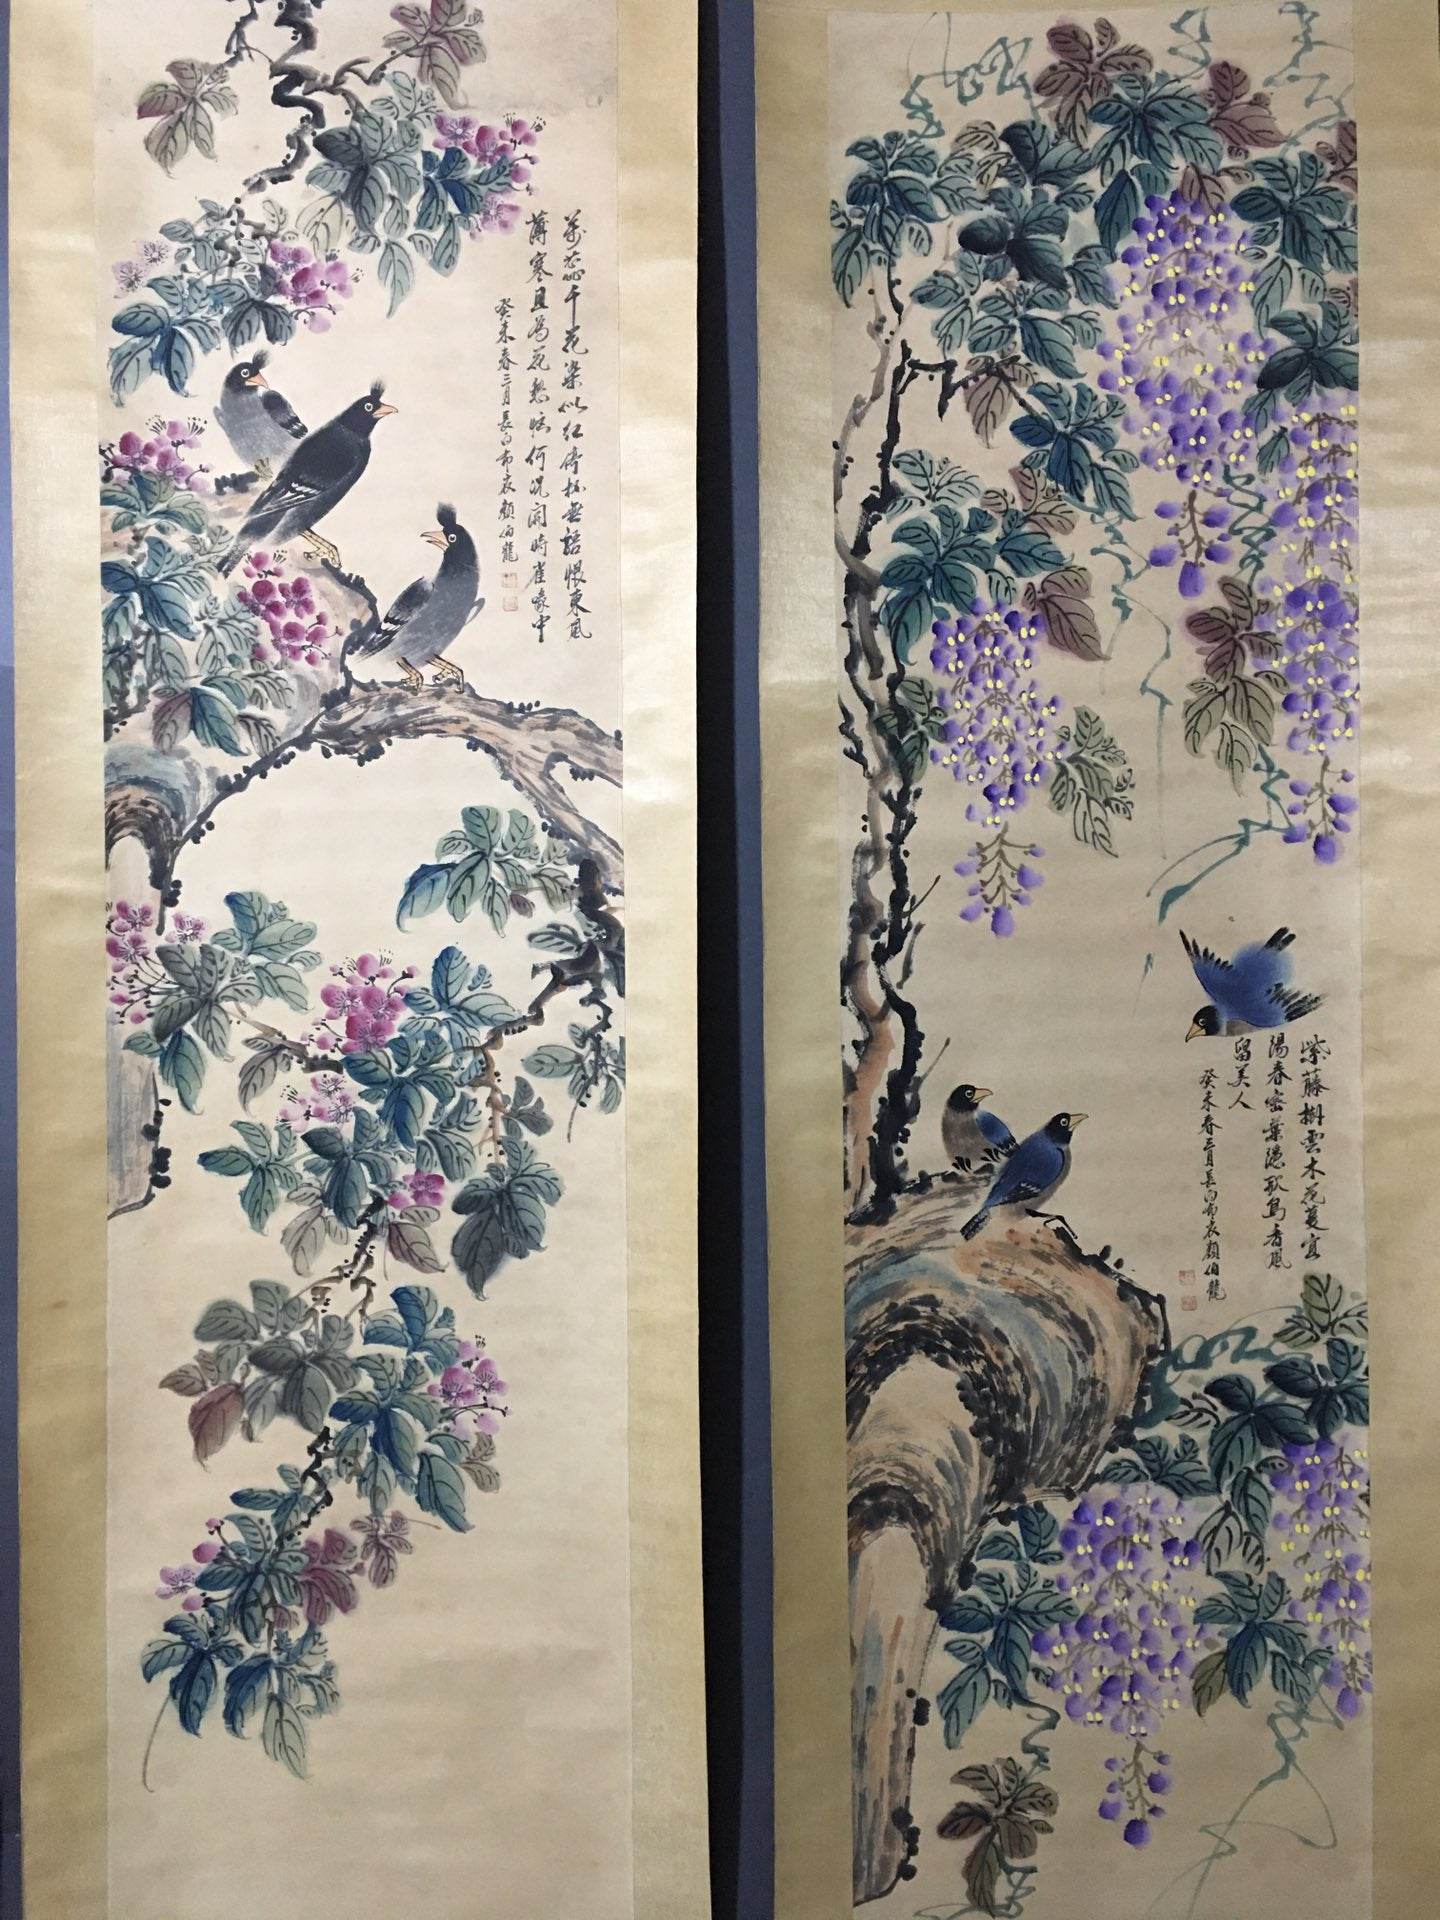 萬蕊千花染似紅倚枝無語恨東風
薄寒且為花愁怯何況開時雀喙中
癸未春三月長白布衣顏伯龍
紫藤掛雲木花蔓宜
陽春密葉隱歌鳥香風
留美人
癸未春三月長白布衣顏伯龍